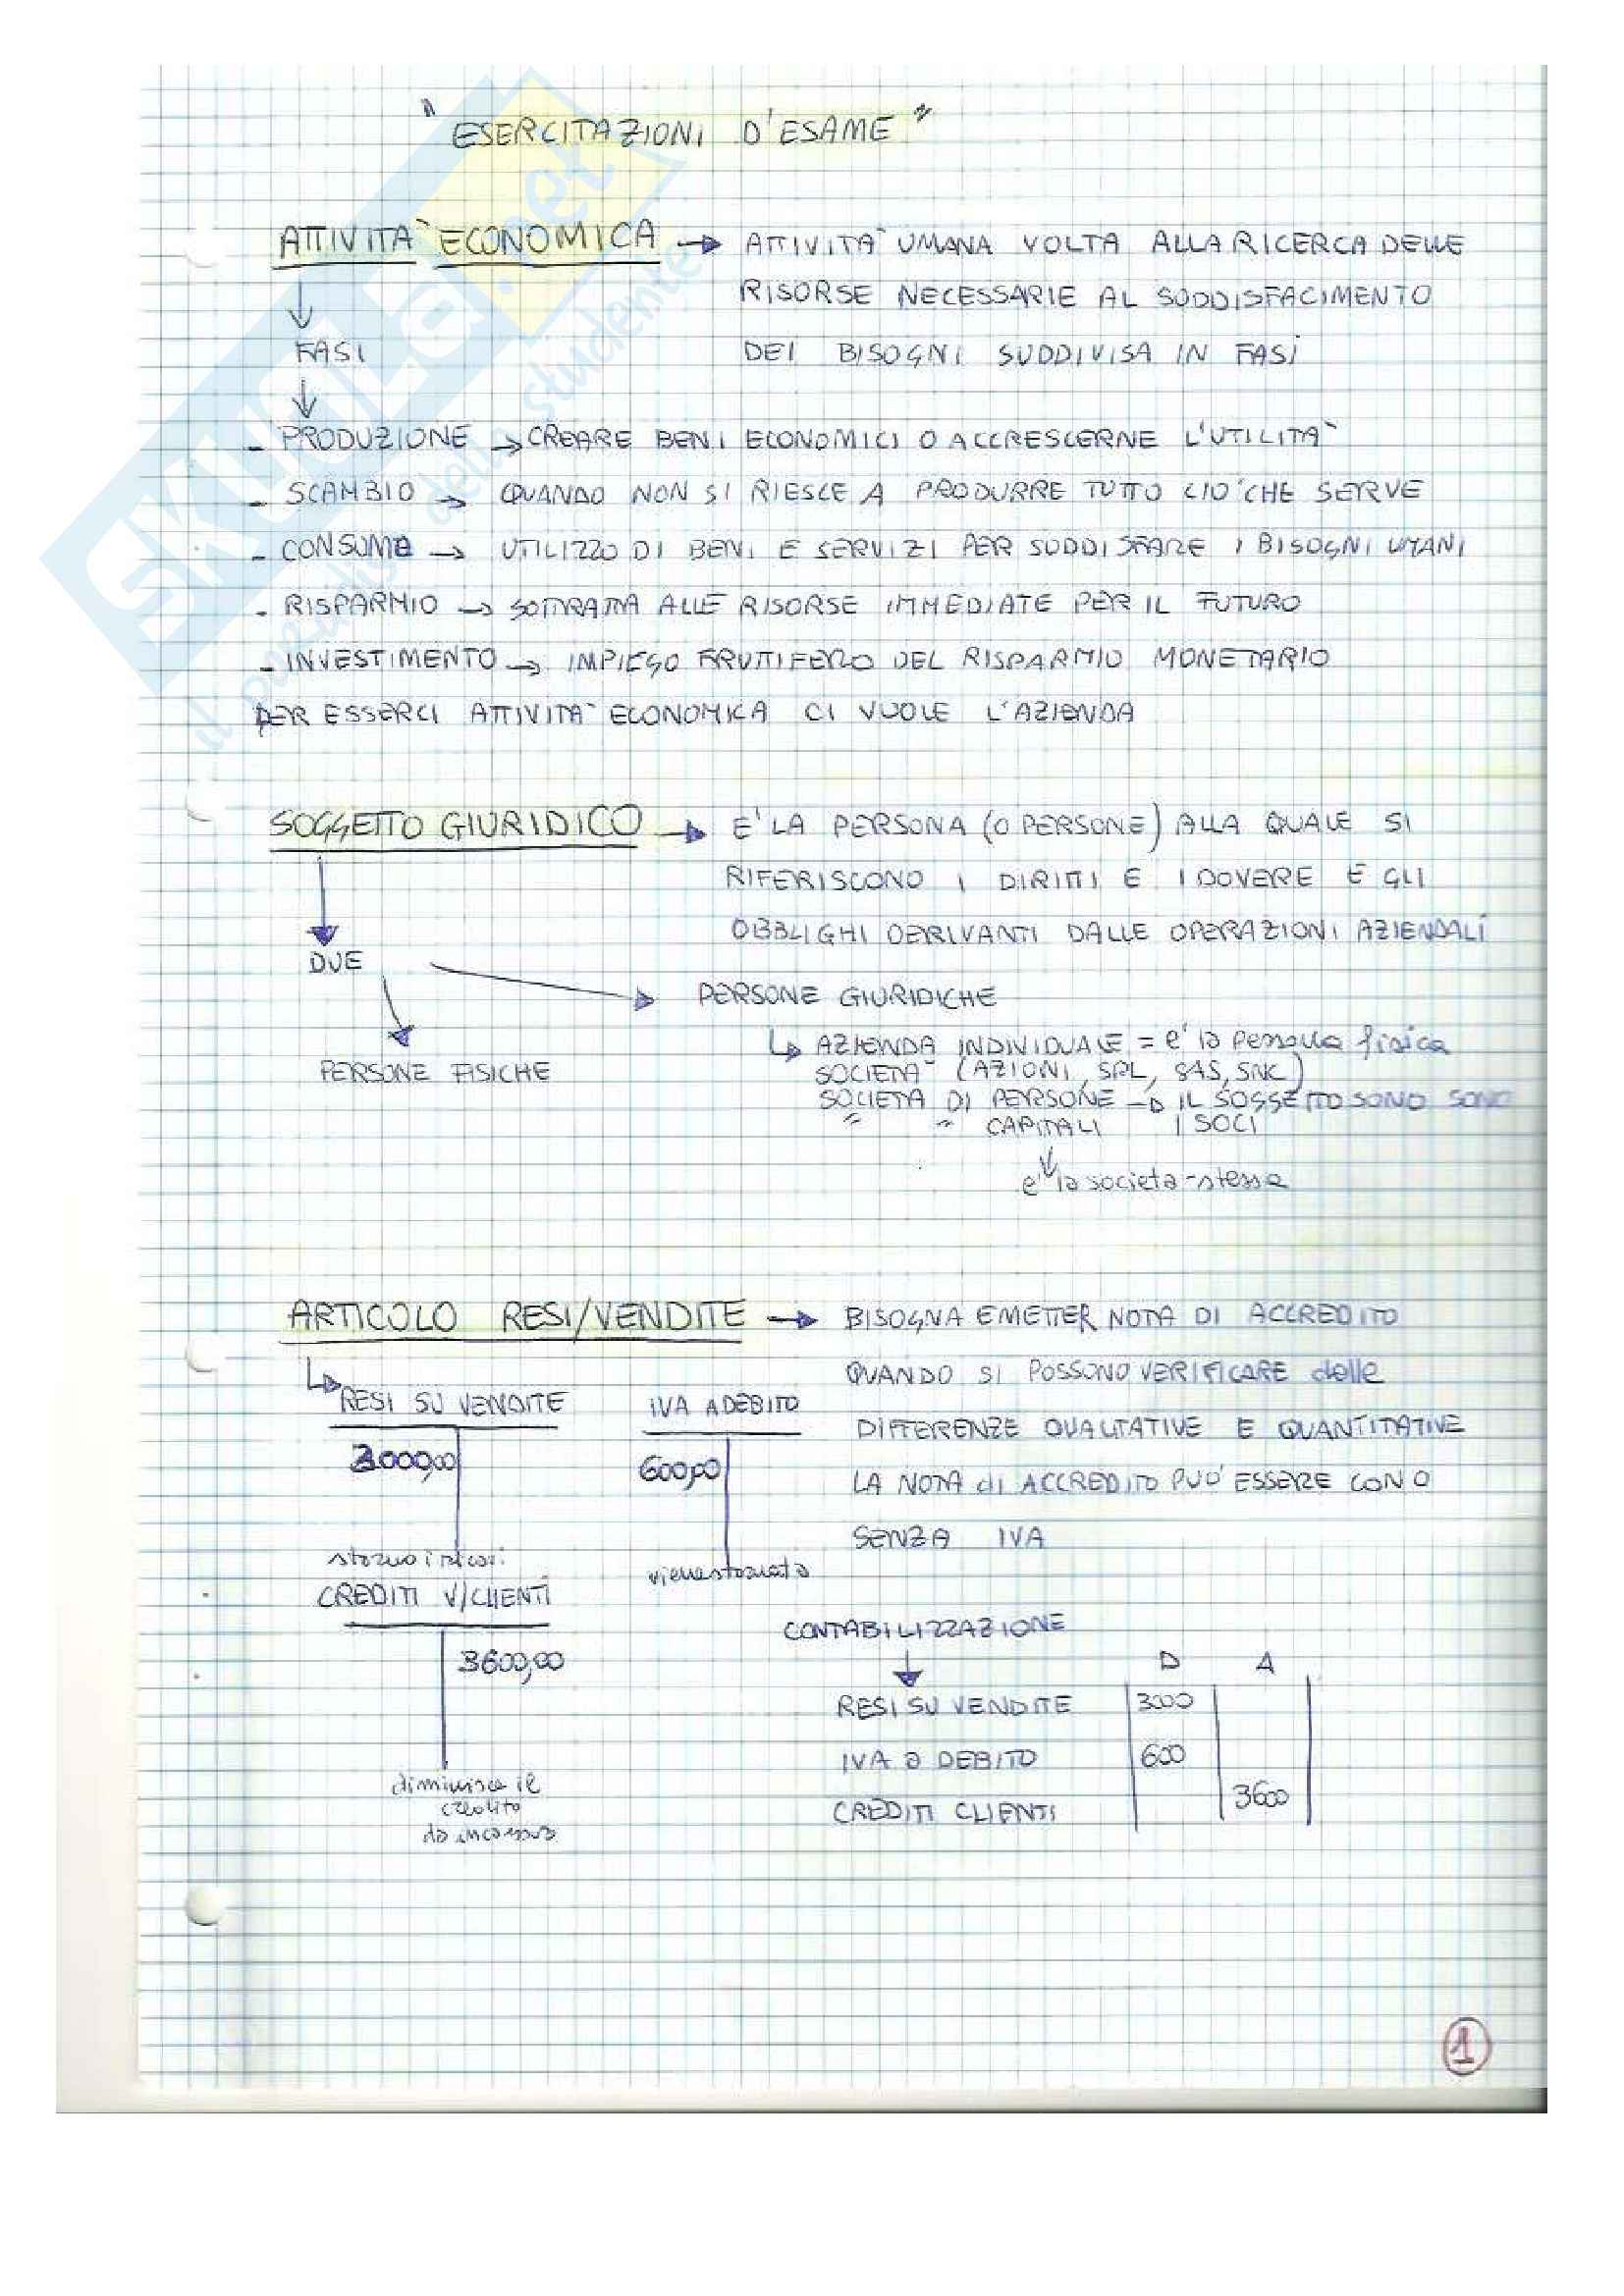 " ESERCITAZIONI D'ESAME "
ATTIVITA' ECONOMICA → ATTIVITA' UMANA VOLTA ALLA RICERCA DELLE
RISORSE NECESSARIE AL SODDISFACIMENTO
FASI
DEI BISOGNI SUDDIVISA IN FASI
- PRODUZIONE → CREARE BENI ECONOMICI O ACCRESCERNE L'UTILITA'
- SCAMBIO → QUANDO NON SI RIESCE A PRODURRE TUTTO CIO' CHE SERVE
- CONSUMO → UTILIZZO DI BENI E SERVIZI PER SODDISFARE I BISOGNI UMANI
- RISPARMIO → SOTTRATTA ALLE RISORSE IMMEDIATE PER IL FUTURO
- INVESTIMENTO → IMPIEGO FRUTTIFERO DEL RISPARMIO MONETARIO
PER ESSERCI ATTIVITA' ECONOMICA CI VUOLE L'AZIENDA
SOGGETTO GIURIDICO → E' LA PERSONA (O PERSONE) ALLA QUALE SI
RIFERISCONO I DIRITTI E I DOVERE E GLI
OBBLIGHI DERIVANTI DALLE OPERAZIONI AZIENDALI
DUE
PERSONE GIURIDICHE
AZIENDA INDIVIDUALE = e' la persona fisica
PERSONE FISICHE
SOCIETA' (AZIONI, SRL, SAS, SNC)
SOCIETA DI PERSONE → IL SOGGETTO SONO SONO
" " CAPITALI I SOCI
e' la societa stessa
ARTICOLO RESI/VENDITE → BISOGNA EMETTER NOTA DI ACCREDITO
QUANDO SI POSSONO VERIFICARE delle
RESI SU VENDITE IVA A DEBITO
DIFFERENZE QUALITATIVE E QUANTITATIVE
3000,00 600,00
LA NOTA di ACCREDITO PUO' ESSERE CON O
SENZA IVA
storno i ricavi
viene stornata
CREDITI V/CLIENTI
CONTABILIZZAZIONE
3600,00
D A
RESI SU VENDITE 3000
IVA a DEBITO 600
diminuisce il
credito
da incassare
CREDITI CLIENTI 3600
1
SKUOLA.net
il paradiso dello studente